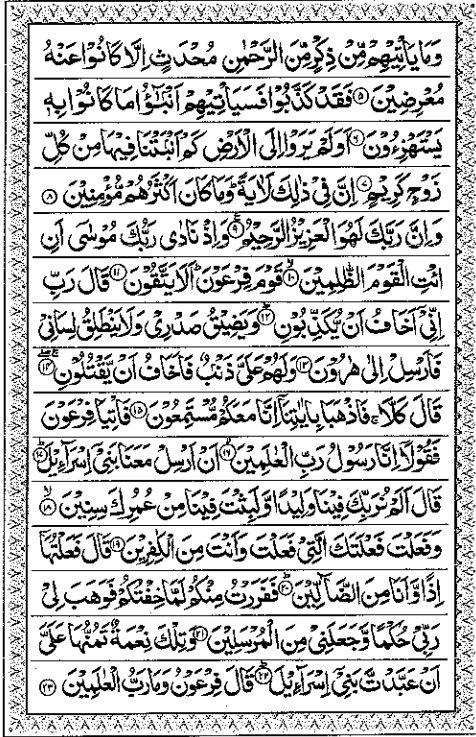 وَمَا يَاْتِيْهِمْ مِّنْ ذِكْرٍ مِّنَ الرَّحْمٰنِ مُحْدَثٍ اِلَّا كَانُوْا عَنْهُ
مُعْرِضِيْنَ ۝۵ فَقَدْ كَذَّبُوْا فَسَيَاْتِيْهِمْ اَنْۢبٰٓؤُا مَا كَانُوْا بِهٖ
يَسْتَهْزِءُوْنَ ۝۶ اَوَلَمْ يَرَوْا اِلَى الْاَرْضِ كَمْ اَنْۢبَتْنَا فِيْهَا مِنْ كُلِّ
زَوْجٍ كَرِيْمٍ ۝۷ اِنَّ فِيْ ذٰلِكَ لَاٰيَةً ؕ وَمَا كَانَ اَكْثَرُهُمْ مُّؤْمِنِيْنَ ۝۸
وَاِنَّ رَبَّكَ لَهُوَ الْعَزِيْزُ الرَّحِيْمُ ۝۹ وَاِذْ نَادٰى رَبُّكَ مُوْسٰٓى اَنِ
ائْتِ الْقَوْمَ الظّٰلِمِيْنَ ۝۱۰ قَوْمَ فِرْعَوْنَ ؕ اَلَا يَتَّقُوْنَ ۝۱۱ قَالَ رَبِّ
اِنِّيْٓ اَخَافُ اَنْ يُّكَذِّبُوْنِ ۝۱۲ وَيَضِيْقُ صَدْرِيْ وَلَا يَنْطَلِقُ لِسَانِيْ
فَاَرْسِلْ اِلٰى هٰرُوْنَ ۝۱۳ وَلَهُمْ عَلَيَّ ذَنْۢبٌ فَاَخَافُ اَنْ يَّقْتُلُوْنِ ۝۱۴
قَالَ كَلَّا ۚ فَاذْهَبَا بِاٰيٰتِنَآ اِنَّا مَعَكُمْ مُّسْتَمِعُوْنَ ۝۱۵ فَاْتِيَا فِرْعَوْنَ
فَقُوْلَآ اِنَّا رَسُوْلُ رَبِّ الْعٰلَمِيْنَ ۝۱۶ اَنْ اَرْسِلْ مَعَنَا بَنِيْٓ اِسْرَآءِيْلَ ۝۱۷
قَالَ اَلَمْ نُرَبِّكَ فِيْنَا وَلِيْدًا وَّلَبِثْتَ فِيْنَا مِنْ عُمُرِكَ سِنِيْنَ ۝۱۸
وَفَعَلْتَ فَعْلَتَكَ الَّتِيْ فَعَلْتَ وَاَنْتَ مِنَ الْكٰفِرِيْنَ ۝۱۹ قَالَ فَعَلْتُهَآ
اِذًا وَّاَنَا مِنَ الضَّآلِّيْنَ ۝۲۰ فَفَرَرْتُ مِنْكُمْ لَمَّا خِفْتُكُمْ فَوَهَبَ لِيْ
رَبِّيْ حُكْمًا وَّجَعَلَنِيْ مِنَ الْمُرْسَلِيْنَ ۝۲۱ وَتِلْكَ نِعْمَةٌ تَمُنُّهَا عَلَيَّ
اَنْ عَبَّدْتَّ بَنِيْٓ اِسْرَآءِيْلَ ۝۲۲ قَالَ فِرْعَوْنُ وَمَا رَبُّ الْعٰلَمِيْنَ ۝۲۳